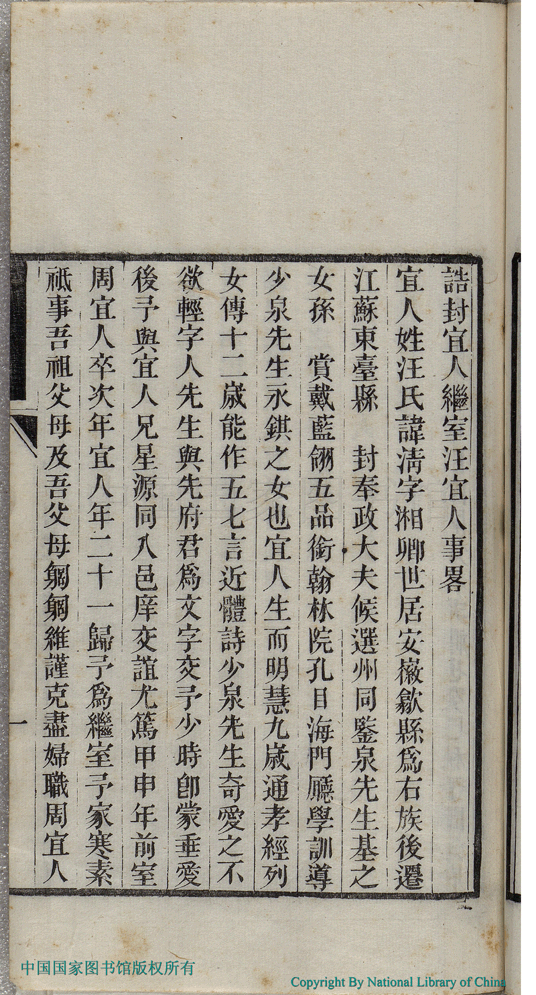 誥封宜人繼室汪宜人事畧
宜人姓汪氏諱淸字湘卿世居安徽歙縣爲右族後遷
江蘇東臺縣　封奉政大夫候選州同鑒泉先生基之
女孫　賞戴藍翎五品銜翰林院孔目海門廳學訓導
少泉先生永錤之女也宜人生而明慧九歲通孝經列
女傳十二歲能作五七言近體詩少泉先生奇愛之不
欲輕字人先生與先府君爲文字交予少時卽蒙垂愛
後予與宜人兄星源同入邑庠交誼尤篤甲申年前室
周宜人卒次年宜人年二十一歸予爲繼室予家寒素
祗事吾祖父母及吾父母躹躹維謹克盡婦職周宜人
一
中国国家图书馆版权所有
Copyright By National Library of China